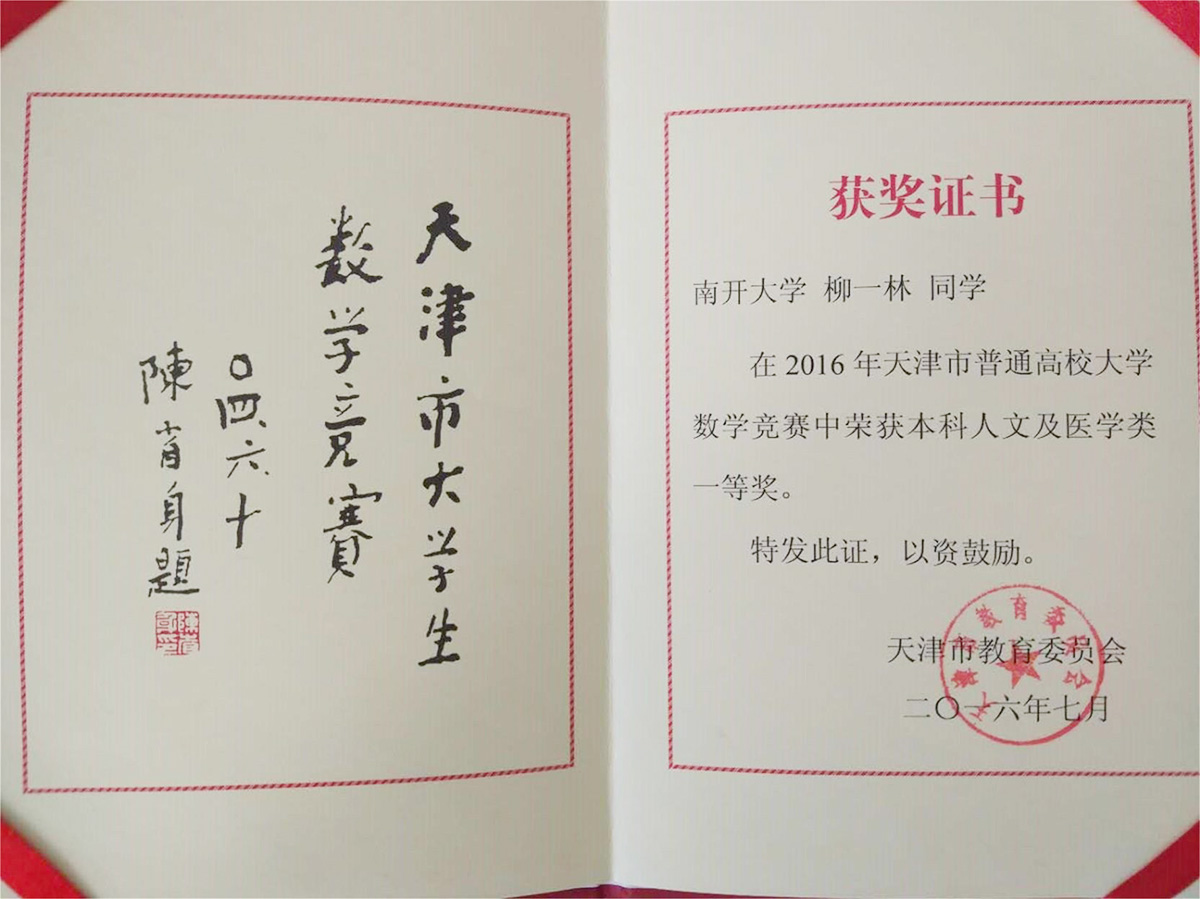 天津市大学生
数学竞賽
〇四.六.十
陳省身題
陳省身印
获奖证书
南开大学 柳一林 同学
在 2016 年天津市普通高校大学
数学竞赛中荣获本科人文及医学类
一等奖。
特发此证，以资鼓励。
天津市教育委员会
二〇一六年七月
天津市教育委员会